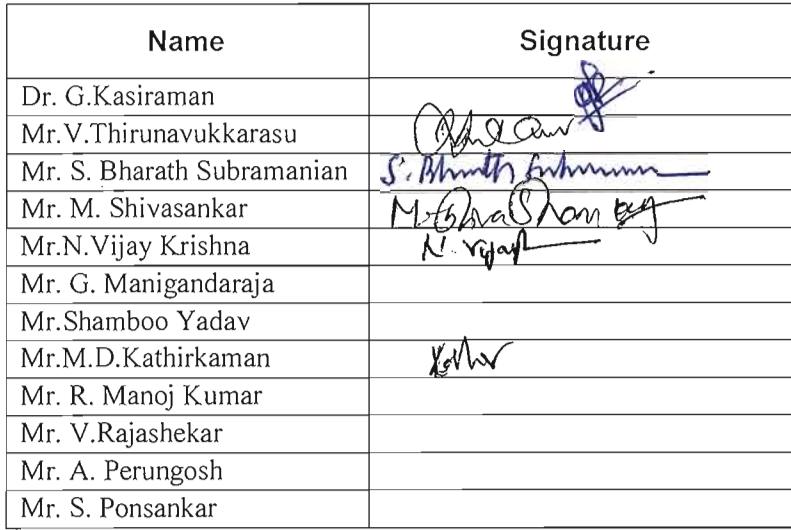 Name Signature
Dr. G.Kasiraman
Mr.V.Thirunavukkarasu
Mr. S. Bharath Subramanian S. Bharath Subramanian
Mr. M. Shivasankar M. Shiva Shankar
Mr.N.Vijay Krishna N. Vijay
Mr. G. Manigandaraja
Mr.Shamboo Yadav
Mr.M.D.Kathirkaman Kathir
Mr. R. Manoj Kumar
Mr. V.Rajashekar
Mr. A. Perungosh
Mr. S. Ponsankar